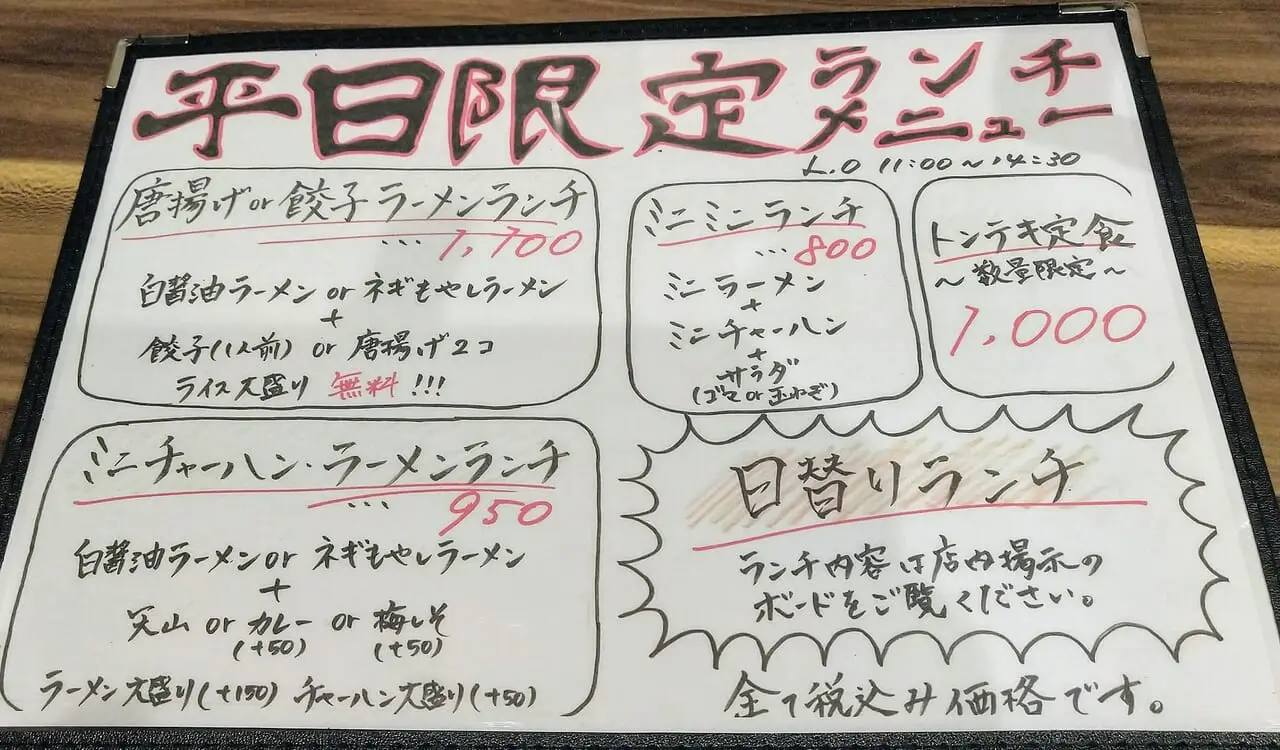 平日限定ランチメニュー
L.O 11:00～14:30
唐揚げor餃子ラーメンランチ
… 1,100
白醤油ラーメン or ネギもやしラーメン
+
餃子(1人前) or 唐揚げ2コ
ライス大盛り 無料!!!
ミニミニランチ
… 800
ミニラーメン
+
ミニチャーハン
+
サラダ
(ゴマ or 玉ねぎ)
トンテキ定食
～数量限定～
1,000
ミニチャーハン・ラーメンランチ
… 950
白醤油ラーメン or ネギもやしラーメン
+
天山 or カレー or 梅しそ
(+50) (+50)
ラーメン大盛り(+150) チャーハン大盛り(+50)
日替りランチ
ランチ内容は店内掲示の
ボードをご覧ください。
全て税込み価格です。